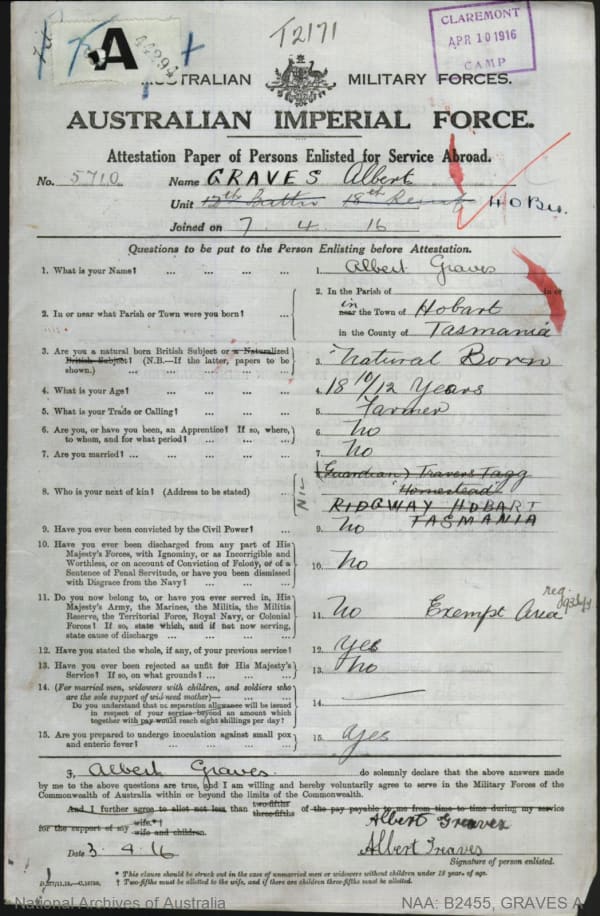 T2171
CLAREMONT
APR 10 1916
CAMP
A
AUSTRALIAN MILITARY FORCES.
AUSTRALIAN IMPERIAL FORCE.
Attestation Paper of Persons Enlisted for Service Abroad.
No. 5710 Name GRAVES Albert
Unit 12th Battn 18th Reinf 40 Bn.
Joined on 7 4 16
Questions to be put to the Person Enlisting before Attestation.
1. What is your Name? ... ... ... ... 1. Albert Graves
2. In or near what Parish or Town were you born? ... 2. In the Parish of in or
in near the Town of Hobart
in the County of Tasmania
3. Are you a natural born British Subject or a Naturalized
British Subject? (N.B.—If the latter, papers to be
shown.) ... ... ... ... 3. Natural Born
4. What is your Age? ... ... ... ... 4. 18 10/12 Years
5. What is your Trade or Calling? ... ... ... 5. Farmer
6. Are you, or have you been, an Apprentice? If so, where,
to whom, and for what period? ... ... ... 6. No
7. Are you married? ... ... ... ... 7. No
8. Who is your next of kin? (Address to be stated) ... 8. NIL (Guardian) Travers Tagg
"Homestead"
RIDGWAY HOBART
TASMANIA
9. Have you ever been convicted by the Civil Power? ... 9. No
10. Have you ever been discharged from any part of His
Majesty's Forces, with Ignominy, or as Incorrigible and
Worthless, or on account of Conviction of Felony, or of a
Sentence of Penal Servitude, or have you been dismissed
with Disgrace from the Navy? ... ... ... 10. No
11. Do you now belong to, or have you ever served in, His
Majesty's Army, the Marines, the Militia, the Militia
Reserve, the Territorial Force, Royal Navy, or Colonial
Forces? If so, state which, and if not now serving,
state cause of discharge ... ... ... 11. No Exempt Area
12. Have you stated the whole, if any, of your previous service? 12. Yes
13. Have you ever been rejected as unfit for His Majesty's
Service? If so, on what grounds? ... ... ... 13. No
14. (For married men, widowers with children, and soldiers who
are the sole support of widowed mother)—
Do you understand that no separation allowance will be issued
in respect of your service beyond an amount which
together with pay would reach eight shillings per day? 14. —
15. Are you prepared to undergo inoculation against small pox
and enteric fever? ... ... ... ... 15. Yes
I, Albert Graves. do solemnly declare that the above answers made
by me to the above questions are true, and I am willing and hereby voluntarily agree to serve in the Military Forces of the
Commonwealth of Australia within or beyond the limits of the Commonwealth.
And I further agree to allot not less than two-fifths three-fifths of the pay payable to me from time to time during my service
for the support of my wife.*† wife and children.
Albert Greaves
Date 3. 4. 16 Albert Greaves
Signature of person enlisted.
* This clause should be struck out in the case of unmarried men or widowers without children under 18 years of age.
† Two-fifths must be allotted to the wife, and if there are children three-fifths must be allotted.
National Archives of Australia NAA: B2455, GRAVES A